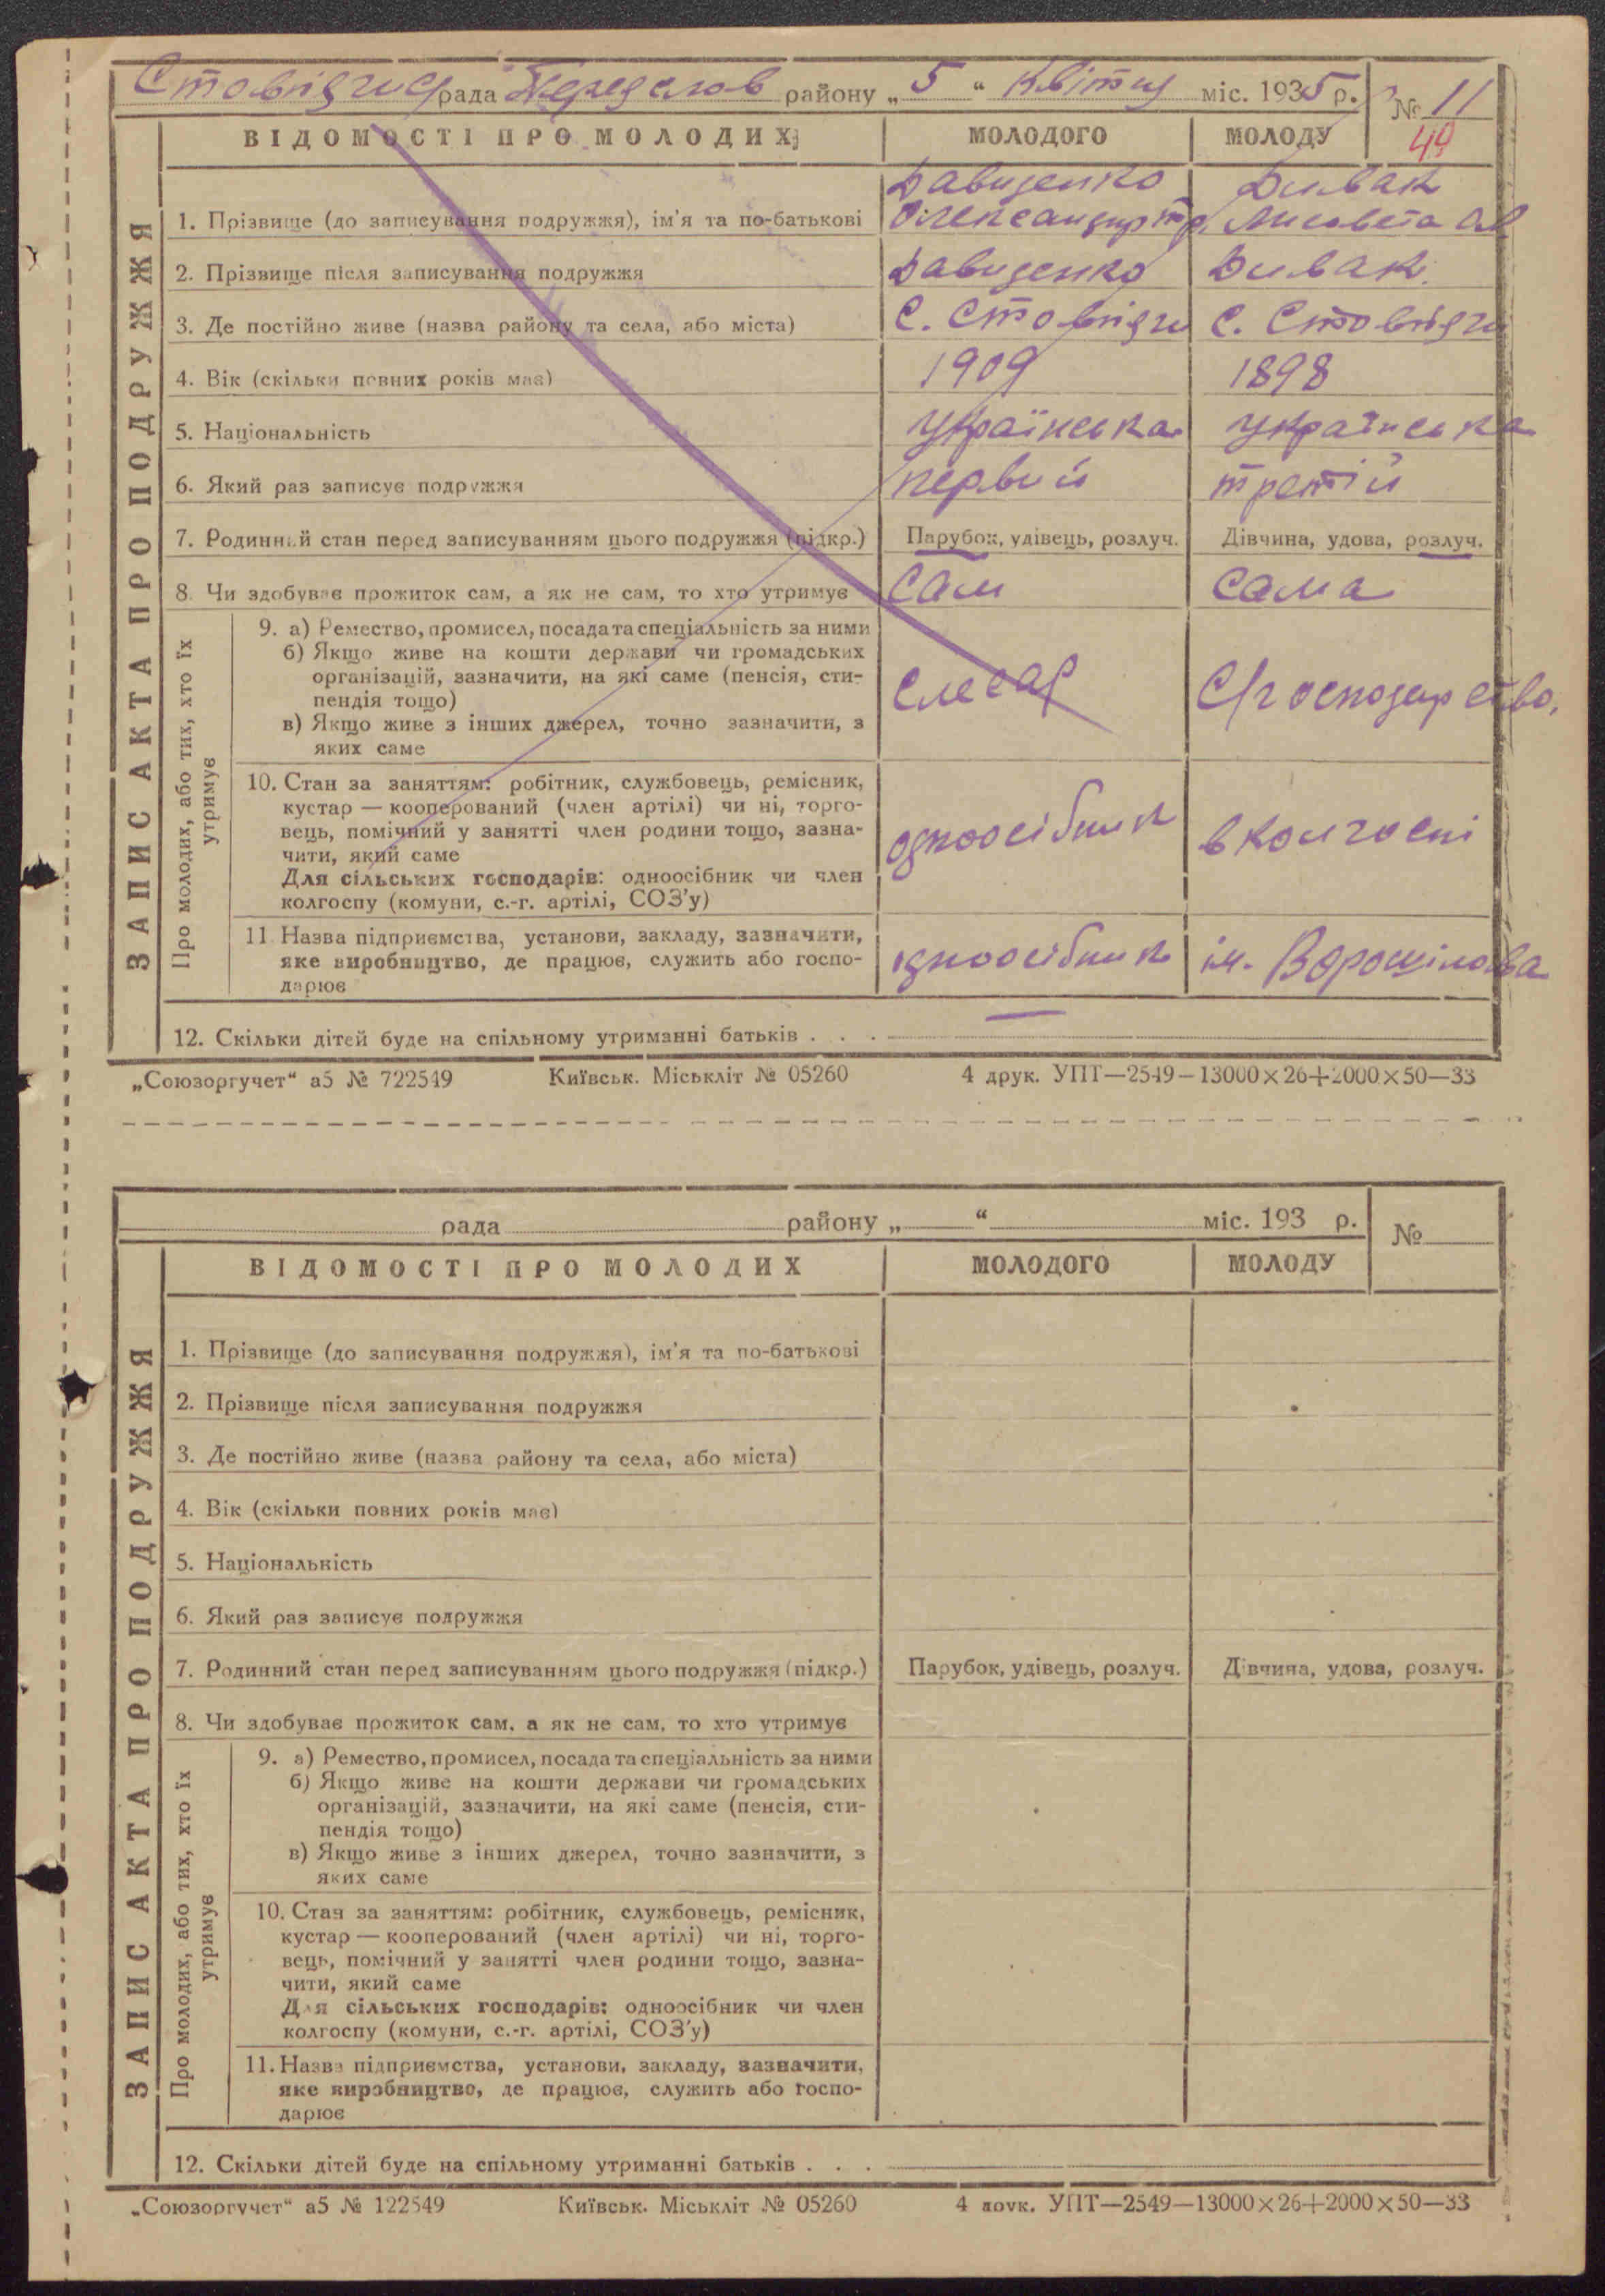 рада району „ 5 “ Квітня міс. 1935 р. № 11
49
ВІДОМОСТІ ПРО МОЛОДИХ МОЛОДОГО МОЛОДУ
ЗАПИС АКТА ПРО ПОДРУЖЖЯ
Давиденко Дивак
1. Прізвище (до записування подружжя), ім’я та по-батькові Олександир Лисавета
2. Прізвище після записування подружжя Давиденко Дивак.
3. Де постійно живе (назва району та села, або міста) С. Стовпяги С. Стовпяги
4. Вік (скільки повних років має) 1909 1898
5. Національність Українська українська
6. Який раз записує подружжя первий третій
7. Родинний стан перед записуванням цього подружжя (підкр.) Парубок, удівець, розлуч. Дівчина, удова, розлуч.
8. Чи здобуває прожиток сам, а як не сам, то хто утримує Сам Сама
Про молодих, або тих, хто їх
утримує
9. а) Ремество, промисел, посада та спеціальність за ними
б) Якщо живе на кошти держави чи громадських
організацій, зазначити, на які саме (пенсія, сти-
пендія тощо)
в) Якщо живе з інших джерел, точно зазначити, з
яких саме
слесар С/господарство.
10. Стан за заняттям: робітник, службовець, ремісник,
кустар — кооперований (член артілі) чи ні, торго-
вець, помічний у занятті член родини тощо, зазна-
чити, який саме
Для сільських господарів: одноосібник чи член
колгоспу (комуни, с.-г. артілі, СОЗ’у)
одноосібник в колгоспі
11. Назва підприємства, установи, закладу, зазначити,
яке виробництво, де працює, служить або госпо-
дарює
одноосібник ім. Ворошілова
12. Скільки дітей буде на спільному утриманні батьків . . . —
„Союзоргучет“ а5 № 722549 Київськ. Міськліт № 05260 4 друк. УПТ—2549—13000×26+2000×50—33
рада району „ “ міс. 193 р. №
ВІДОМОСТІ ПРО МОЛОДИХ МОЛОДОГО МОЛОДУ
ЗАПИС АКТА ПРО ПОДРУЖЖЯ
1. Прізвище (до записування подружжя), ім’я та по-батькові
2. Прізвище після записування подружжя
3. Де постійно живе (назва району та села, або міста)
4. Вік (скільки повних років має)
5. Національність
6. Який раз записує подружжя
7. Родинний стан перед записуванням цього подружжя (підкр.) Парубок, удівець, розлуч. Дівчина, удова, розлуч.
8. Чи здобуває прожиток сам, а як не сам, то хто утримує
Про молодих, або тих, хто їх
утримує
9. а) Ремество, промисел, посада та спеціальність за ними
б) Якщо живе на кошти держави чи громадських
організацій, зазначити, на які саме (пенсія, сти-
пендія тощо)
в) Якщо живе з інших джерел, точно зазначити, з
яких саме
10. Стан за заняттям: робітник, службовець, ремісник,
кустар — кооперований (член артілі) чи ні, торго-
вець, помічний у занятті член родини тощо, зазна-
чити, який саме
Для сільських господарів: одноосібник чи член
колгоспу (комуни, с.-г. артілі, СОЗ’у)
11. Назва підприємства, установи, закладу, зазначити,
яке виробництво, де працює, служить або госпо-
дарює
12. Скільки дітей буде на спільному утриманні батьків . . .
„Союзоргучет“ а5 № 122549 Київськ. Міськліт № 05260 4 друк. УПТ—2549—13000×26+2000×50—33